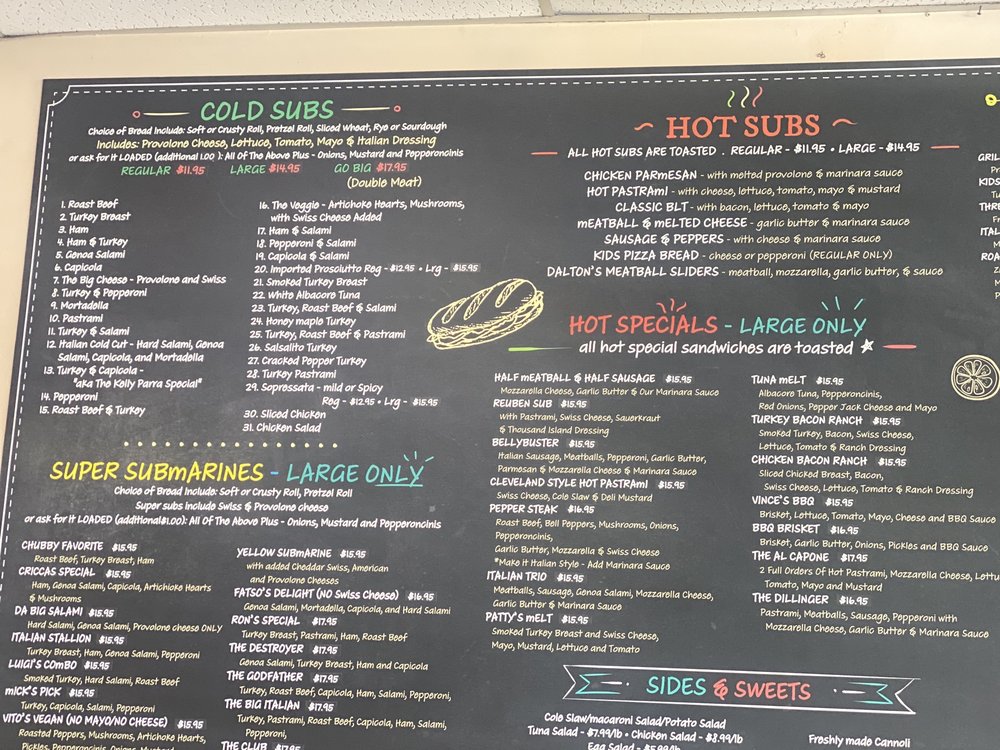 COLD SUBS
Choice of Bread Include: Soft or Crusty Roll, Pretzel Roll, Sliced Wheat, Rye or Sourdough
Includes: Provolone Cheese, Lettuce, Tomato, Mayo & Italian Dressing
or ask for it LOADED (additional 1.00 ): All Of The Above Plus - Onions, Mustard and Pepperoncinis
REGULAR $11.95 LARGE $14.95 GO BIG $17.95
(Double Meat)
1. Roast Beef
2. Turkey Breast
3. Ham
4. Ham & Turkey
5. Genoa Salami
6. Capicola
7. The Big Cheese - Provolone and Swiss
8. Turkey & Pepperoni
9. Mortadella
10. Pastrami
11. Turkey & Salami
12. Italian Cold Cut - Hard Salami, Genoa
Salami, Capicola, and Mortadella
13. Turkey & Capicola -
"aka The Kelly Parra Special"
14. Pepperoni
15. Roast Beef & Turkey
16. The Veggie - Artichoke Hearts, Mushrooms,
with Swiss Cheese Added
17. Ham & Salami
18. Pepperoni & Salami
19. Capicola & Salami
20. Imported Prosciutto Reg - $12.95 • Lrg - $15.95
21. Smoked Turkey Breast
22. White Albacore Tuna
23. Turkey, Roast Beef & Salami
24. Honey maple Turkey
25. Turkey, Roast Beef & Pastrami
26. Salsalito Turkey
27. Cracked Pepper Turkey
28. Turkey Pastrami
29. Sopressata - mild or Spicy
Reg - $12.95 • Lrg - $15.95
30. Sliced Chicken
31. Chicken Salad
SUPER SUBmARINES - LARGE ONLY
Choice of Bread Include: Soft or Crusty Roll, Pretzel Roll
Super subs include Swiss & Provolone cheese
or ask for it LOADED (additional$1.00): All Of The Above Plus - Onions, Mustard and Pepperoncinis
CHUBBY FAVORITE $15.95
Roast Beef, Turkey Breast, Ham
CRICCAS SPECIAL $15.95
Ham, Genoa Salami, Capicola, Artichioke Hearts
& Mushrooms
DA BIG SALAMI $15.95
Hard Salami, Genoa Salami, Provolone cheese ONLY
ITALIAN STALLION $15.95
Turkey Breast, Ham, Genoa Salami, Pepperoni
LUIGI'S COmBO $15.95
Smoked Turkey, Hard Salami, Roast Beef
mICK'S PICK $15.95
Turkey, Capicola, Salami, Pepperoni
VITO'S VEGAN (NO MAYO/NO CHEESE) $15.95
Roasted Peppers, Mushrooms, Artichoke Hearts,
Pickles, Pepperoncinis, Onions, Mustard
YELLOW SUBmARINE $15.95
with added Cheddar Swiss, American
and Provolone Cheeses
FATSO'S DELIGHT (NO Swiss Cheese) $16.95
Genoa Salami, Mortadella, Capicola, and Hard Salami
RON'S SPECIAL $17.95
Turkey Breast, Pastrami, Ham, Roast Beef
THE DESTROYER $17.95
Genoa Salami, Turkey Breast, Ham and Capicola
THE GODFATHER $17.95
Turkey, Roast Beef, Capicola, Ham, Salami, Pepperoni,
THE BIG ITALIAN $17.95
Turkey, Pastrami, Roast Beef, Capicola, Ham, Salami,
Pepperoni,
THE CLUB $17.95
HOT SUBS
ALL HOT SUBS ARE TOASTED . REGULAR - $11.95 • LARGE - $14.95
CHICKEN PARmESAN - with melted provolone & marinara sauce
HOT PASTRAmI - with cheese, lettuce, tomato, mayo & mustard
CLASSIC BLT - with bacon, lettuce, tomato & mayo
mEATBALL & mELTED CHEESE - garlic butter & marinara sauce
SAUSAGE & PEPPERS - with cheese & marinara sauce
KIDS PIZZA BREAD - cheese or pepperoni (REGULAR ONLY)
DALTON'S MEATBALL SLIDERS - meatball, mozzarella, garlic butter, & sauce
HOT SPECIALS - LARGE ONLY
all hot special sandwiches are toasted
HALF mEATBALL & HALF SAUSAGE $15.95
Mozzarella Cheese, Garlic Butter & Our Marinara Sauce
REUBEN SUB $15.95
with Pastrami, Swiss Cheese, Sauerkraut
& Thousand Island Dressing
BELLYBUSTER $15.95
Italian Sausage, Meatballs, Pepperoni, Garlic Butter,
Parmesan & Mozzarella Cheese & Marinara Sauce
CLEVELAND STYLE HOT PASTRAmI $15.95
Swiss Cheese, Cole Slaw & Deli Mustard
PEPPER STEAK $16.95
Roast Beef, Bell Peppers, Mushrooms, Onions,
Pepperoncinis,
Garlic Butter, Mozzarella & Swiss Cheese
*Make it Italian Style - Add Marinara Sauce
ITALIAN TRIO $15.95
Meatballs, Sausage, Genoa Salami, Mozzarella Cheese,
Garlic Butter & Marinara Sauce
PATTY'S mELT $15.95
Smoked Turkey Breast and Swiss Cheese,
Mayo, Mustard, Lettuce and Tomato
TUNA mELT $15.95
Albacore Tuna, Pepperoncinis,
Red Onions, Pepper Jack Cheese and Mayo
TURKEY BACON RANCH $15.95
Smoked Turkey, Bacon, Swiss Cheese,
Lettuce, Tomato & Ranch Dressing
CHICKEN BACON RANCH $15.95
Sliced Chicked Breast, Bacon,
Swiss Cheese, Lettuce, Tomato & Ranch Dressing
VINCE'S BBQ $15.95
Brisket, Lettuce, Tomato, Mayo, Cheese and BBQ Sauce
BBQ BRISKET $16.95
Brisket, Garlic Butter, Onions, Pickles and BBQ Sauce
THE AL CAPONE $17.95
2 Full Orders Of Hot Pastrami, Mozzarella Cheese, Lettu
Tomato, Mayo and Mustard
THE DILLINGER $16.95
Pastrami, Meatballs, Sausage, Pepperoni with
Mozzarella Cheese, Garlic Butter & Marinara Sauce
SIDES & SWEETS
Cole Slaw/macaroni Salad/Potato Salad
Tuna Salad - $7.99/lb • Chicken Salad - $8.99/lb
Egg Salad - $5.99/lb
Freshly made Cannoli
GRIL
KIDS
THRE
ITAL
ROA